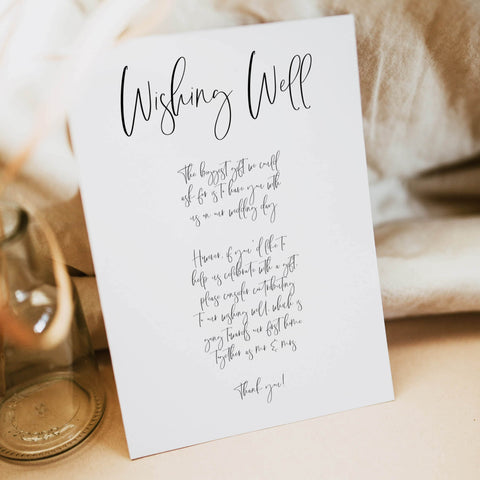 Wishing Well
The biggest gift we could
ask for is to have you with
us on our wedding day
However, if you'd like to
help us celebrate with a gift,
please consider contributing
to our wishing well which is
going towards our first home
together as mr & mrs
Thank you!